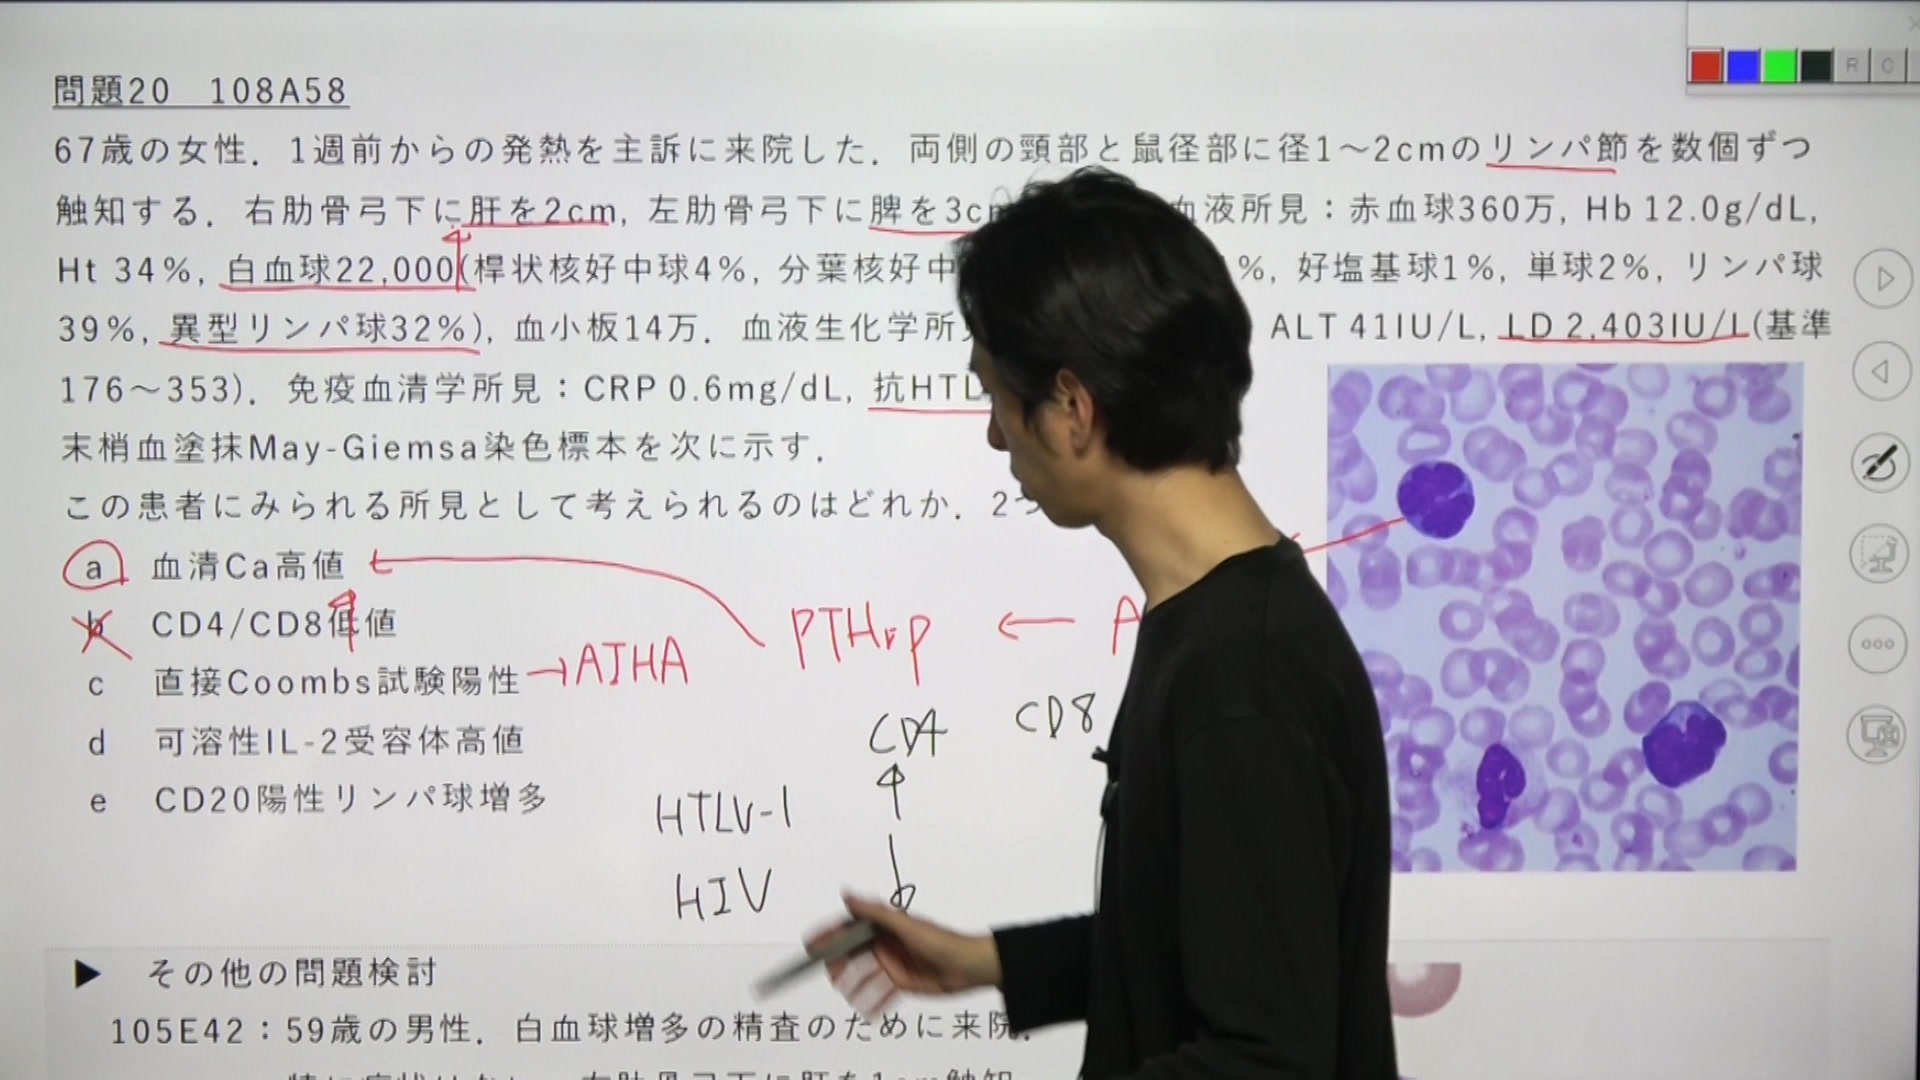 問題20 108A58
67歳の女性．1週前からの発熱を主訴に来院した．両側の頸部と鼠径部に径1〜2cmのリンパ節を数個ずつ
触知する．右肋骨弓下に肝を2cm, 左肋骨弓下に脾を3c 血液所見：赤血球360万, Hb 12.0g/dL,
Ht 34%, 白血球22,000(桿状核好中球4%, 分葉核好中 %, 好塩基球1%, 単球2%, リンパ球
39%, 異型リンパ球32%), 血小板14万．血液生化学所 ALT 41IU/L, LD 2,403IU/L(基準
176〜353)．免疫血清学所見：CRP 0.6mg/dL, 抗HTL
末梢血塗抹May-Giemsa染色標本を次に示す．
この患者にみられる所見として考えられるのはどれか．2つ
a 血清Ca高値
b CD4/CD8低値
c 直接Coombs試験陽性→AIHA
PTHrP ← A
d 可溶性IL-2受容体高値
CD4 CD8
e CD20陽性リンパ球増多
HTLV-1 ↑
HIV ↓
▶ その他の問題検討
105E42：59歳の男性．白血球増多の精査のために来院．
R C